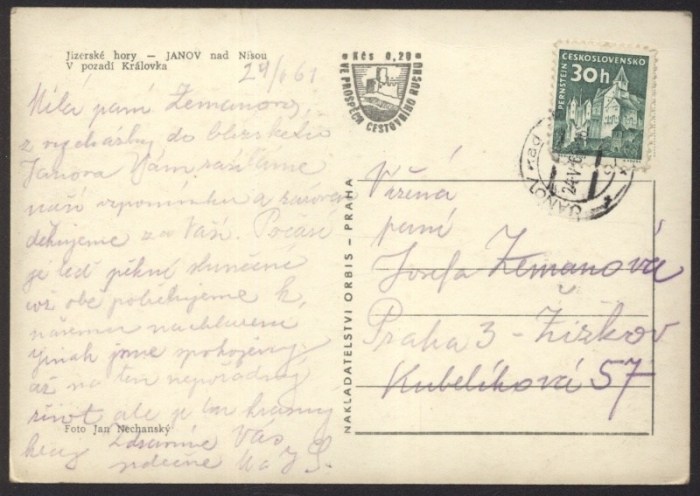 Jizerské hory — JANOV nad Nisou
V pozadí Královka
24/V 61
Milá paní Zemanová,
z vycházky do blízkého
Janova Vám zasíláme
naší vzpomínku a zároveň
děkujeme za Vaší. Počasí
je teď pěkné slunečné
což obě potřebujeme k
našemu nachlazení
jinak jsme spokojeny.
až na ten nepořádný
život ale je tu krásný
Zdravíme Vás
srdečně
Foto Jan Nechanský
Kčs 0,20
VE PROSPĚCH CESTOVNÍHO RUCHU
NAKLADATELSTVÍ ORBIS — PRAHA
ČESKOSLOVENSKO
30h
PERNŠTEJN
JANOV NAD
24.V.6
Vážená
paní
Josefa Zemanová
Praha 3 - Žižkov
Kubelíková 57